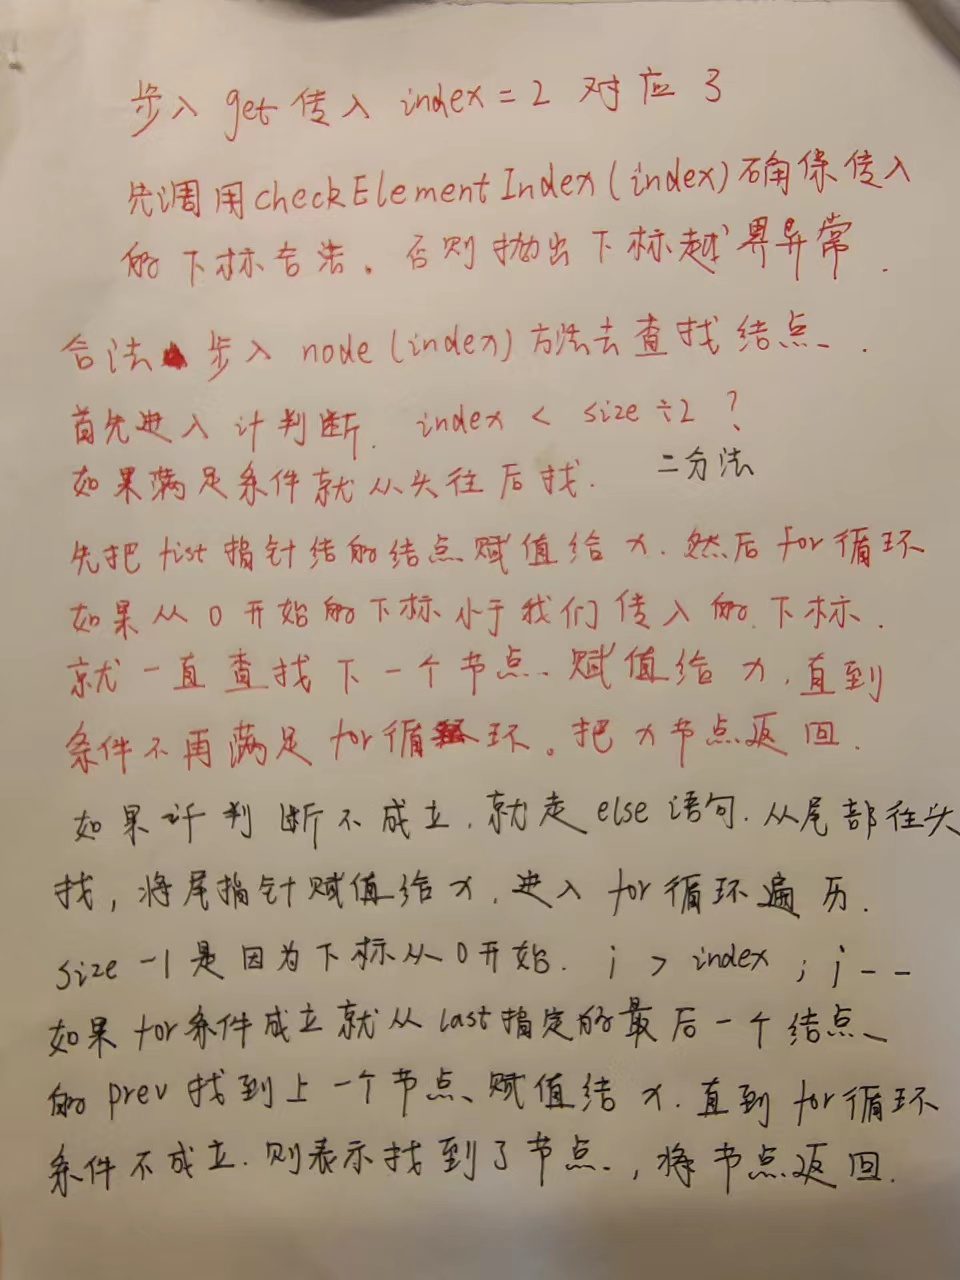 步入 get 传入 index = 2 对应 3
先调用 checkElementIndex(index) 确保传入
的下标合法。否则抛出下标越界异常.
合法 步入 node (index) 方法去查找结点.
首先进入 计判断. index < size ÷2 ?
如果满足条件就从头往后找. 二分法
先把 fist 指针结的结点赋值给 x. 然后 for 循环
如果从 0 开始的下标小于我们传入的下标.
就一直查找下一个节点、赋值给 x, 直到
条件不再满足 for 循环。把 x 节点返回.
如果 计判断不成立. 就走 else 语句. 从尾部往头
找, 将尾指针赋值给 x. 进入 for 循环遍历.
size -1 是因为下标从 0 开始. i > index ; i --
如果 for 条件成立就从 last 指定的最后一个结点
的 prev 找到上一个节点、赋值结 x. 直到 for 循环
条件不成立. 则表示找到了节点., 将节点返回.